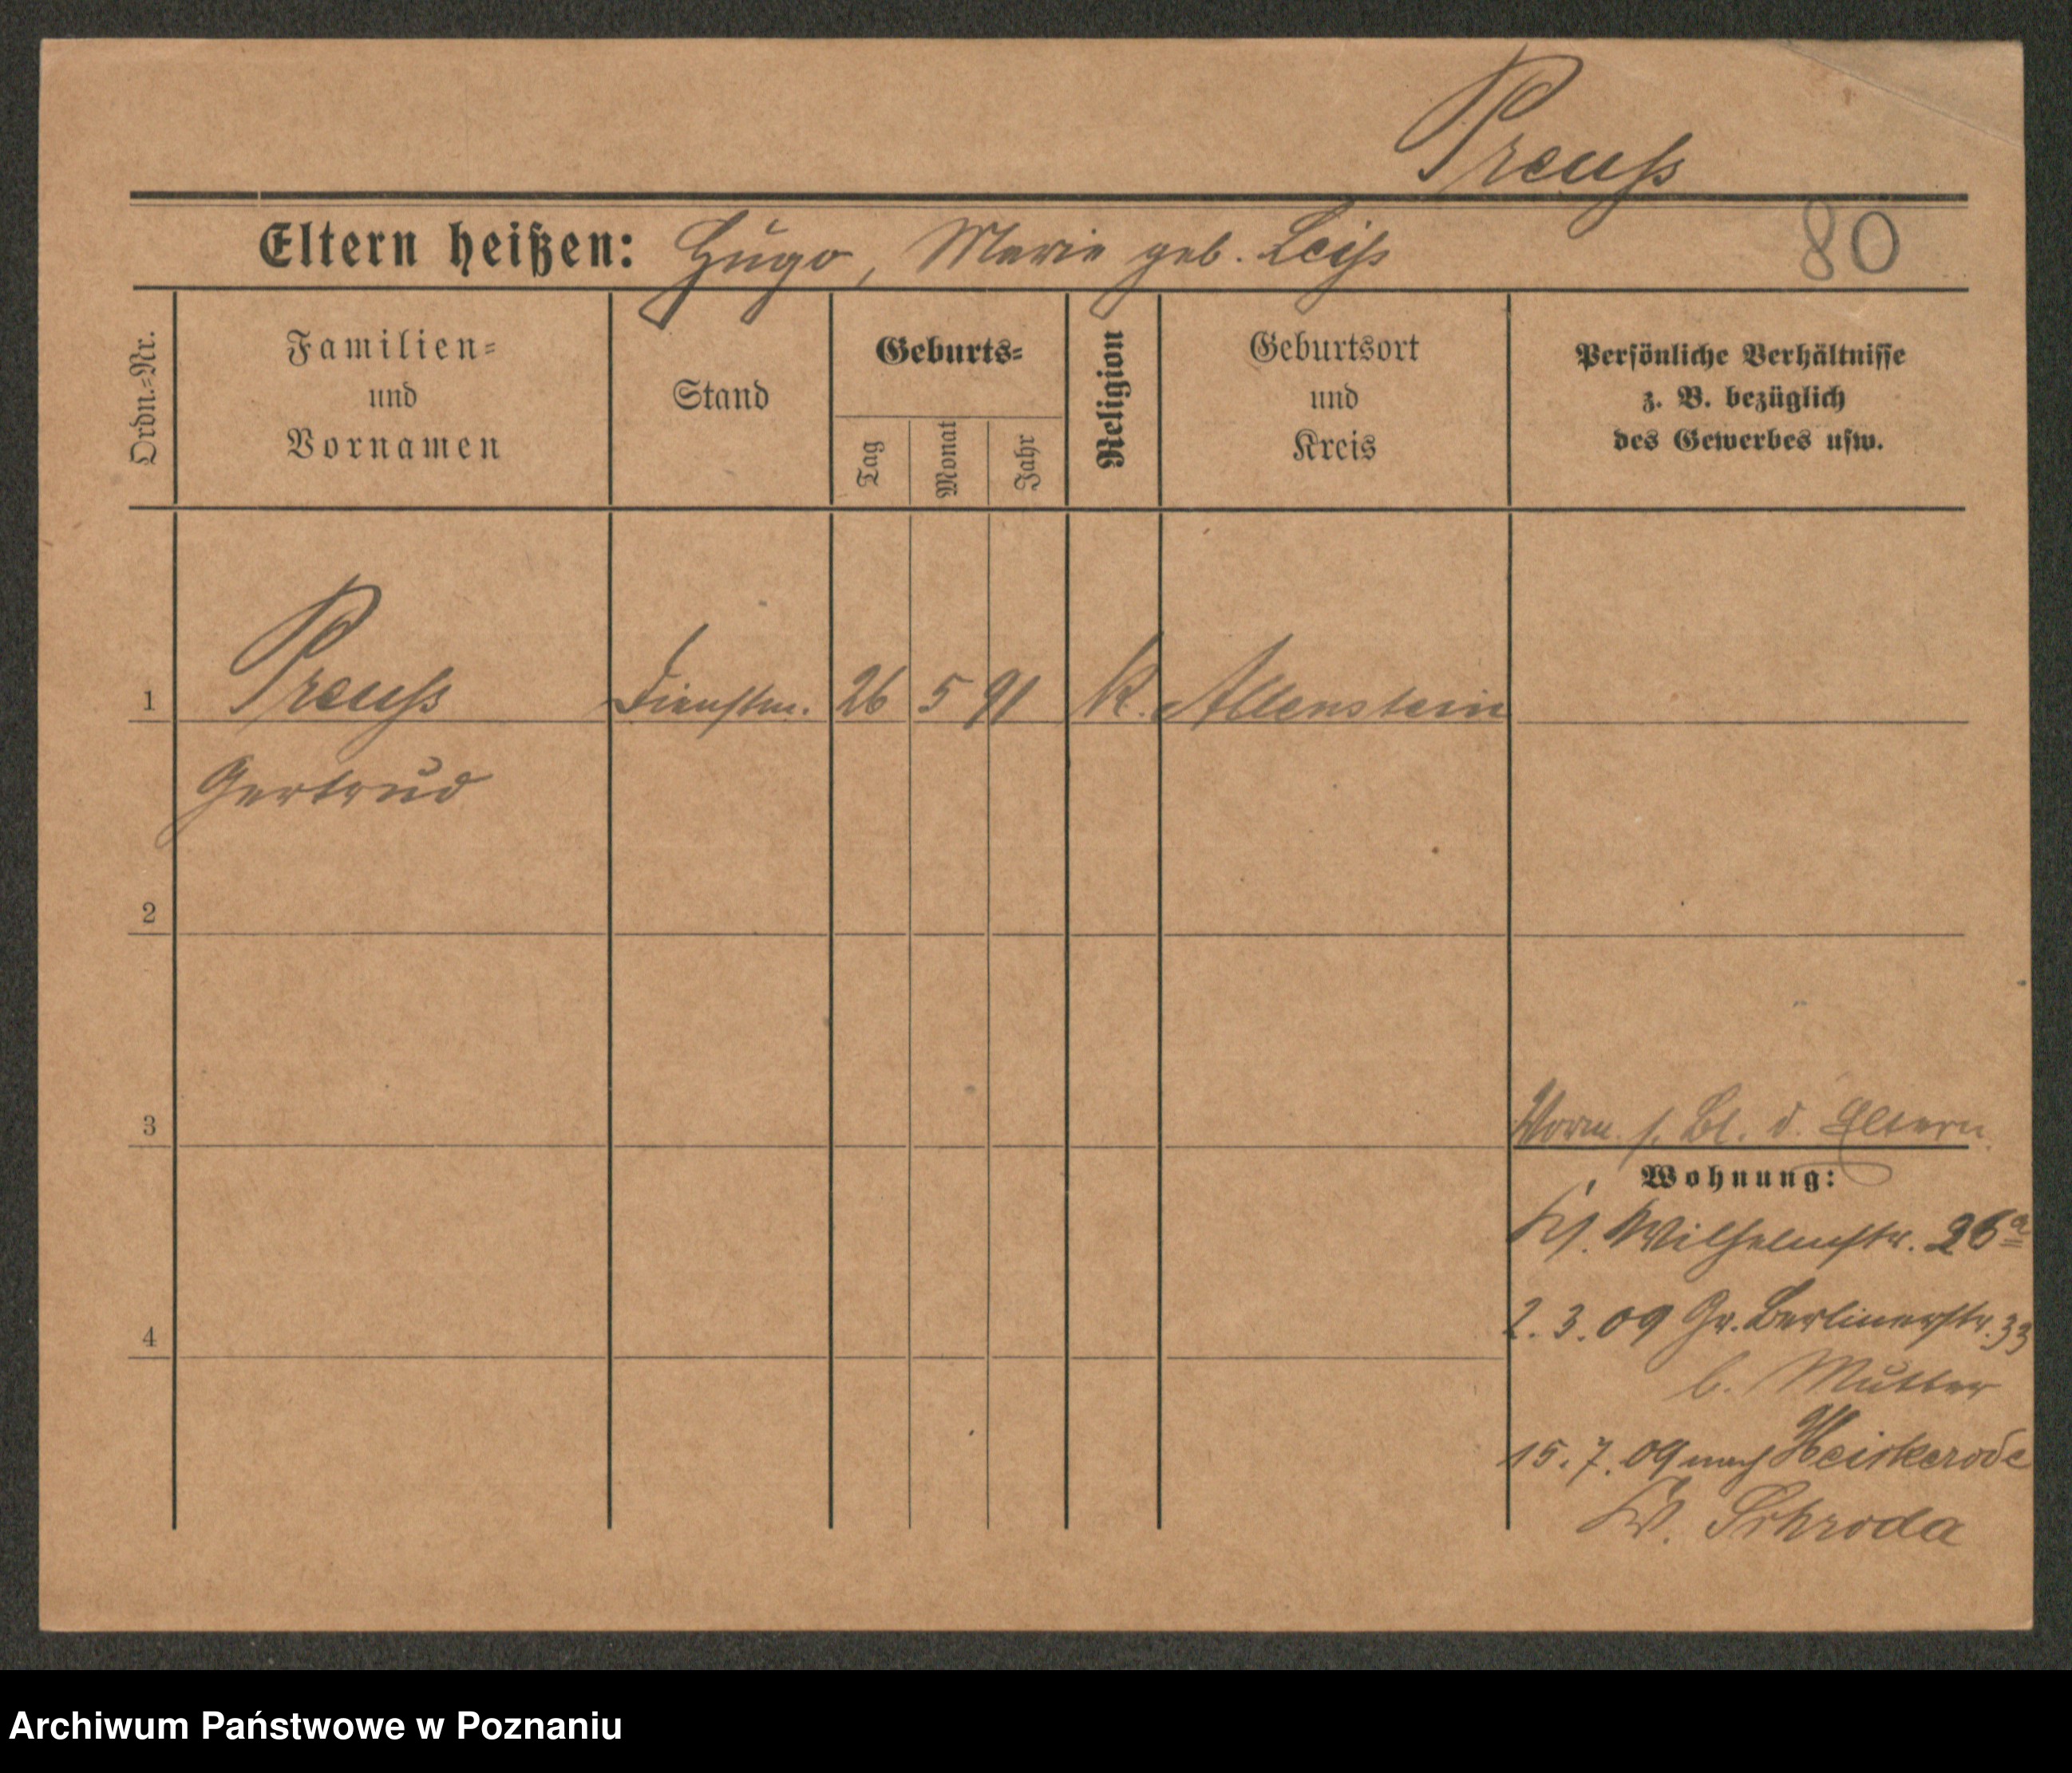 Preuß
Eltern heißen: Hugo, Marie geb. Leiß
80
Ordn.=Nr.
Familien=
und
Vornamen
Stand
Geburts=
Tag
Monat
Jahr
Religion
Geburtsort
und
Kreis
Persönliche Verhältnisse
z. B. bezüglich
des Gewerbes usw.
1 Preuß Dienstm. 26 5 91 k. Allenstein
Gertrud
2
3
Vorm. s. Bl. d. Eltern
Wohnung:
Wilhelmstr. 26a
4
2. 3. 09 Gr. Berlinerstr. 33
b. Mutter
15. 7. 09 nach
Kr. Schroda
Archiwum Państwowe w Poznaniu